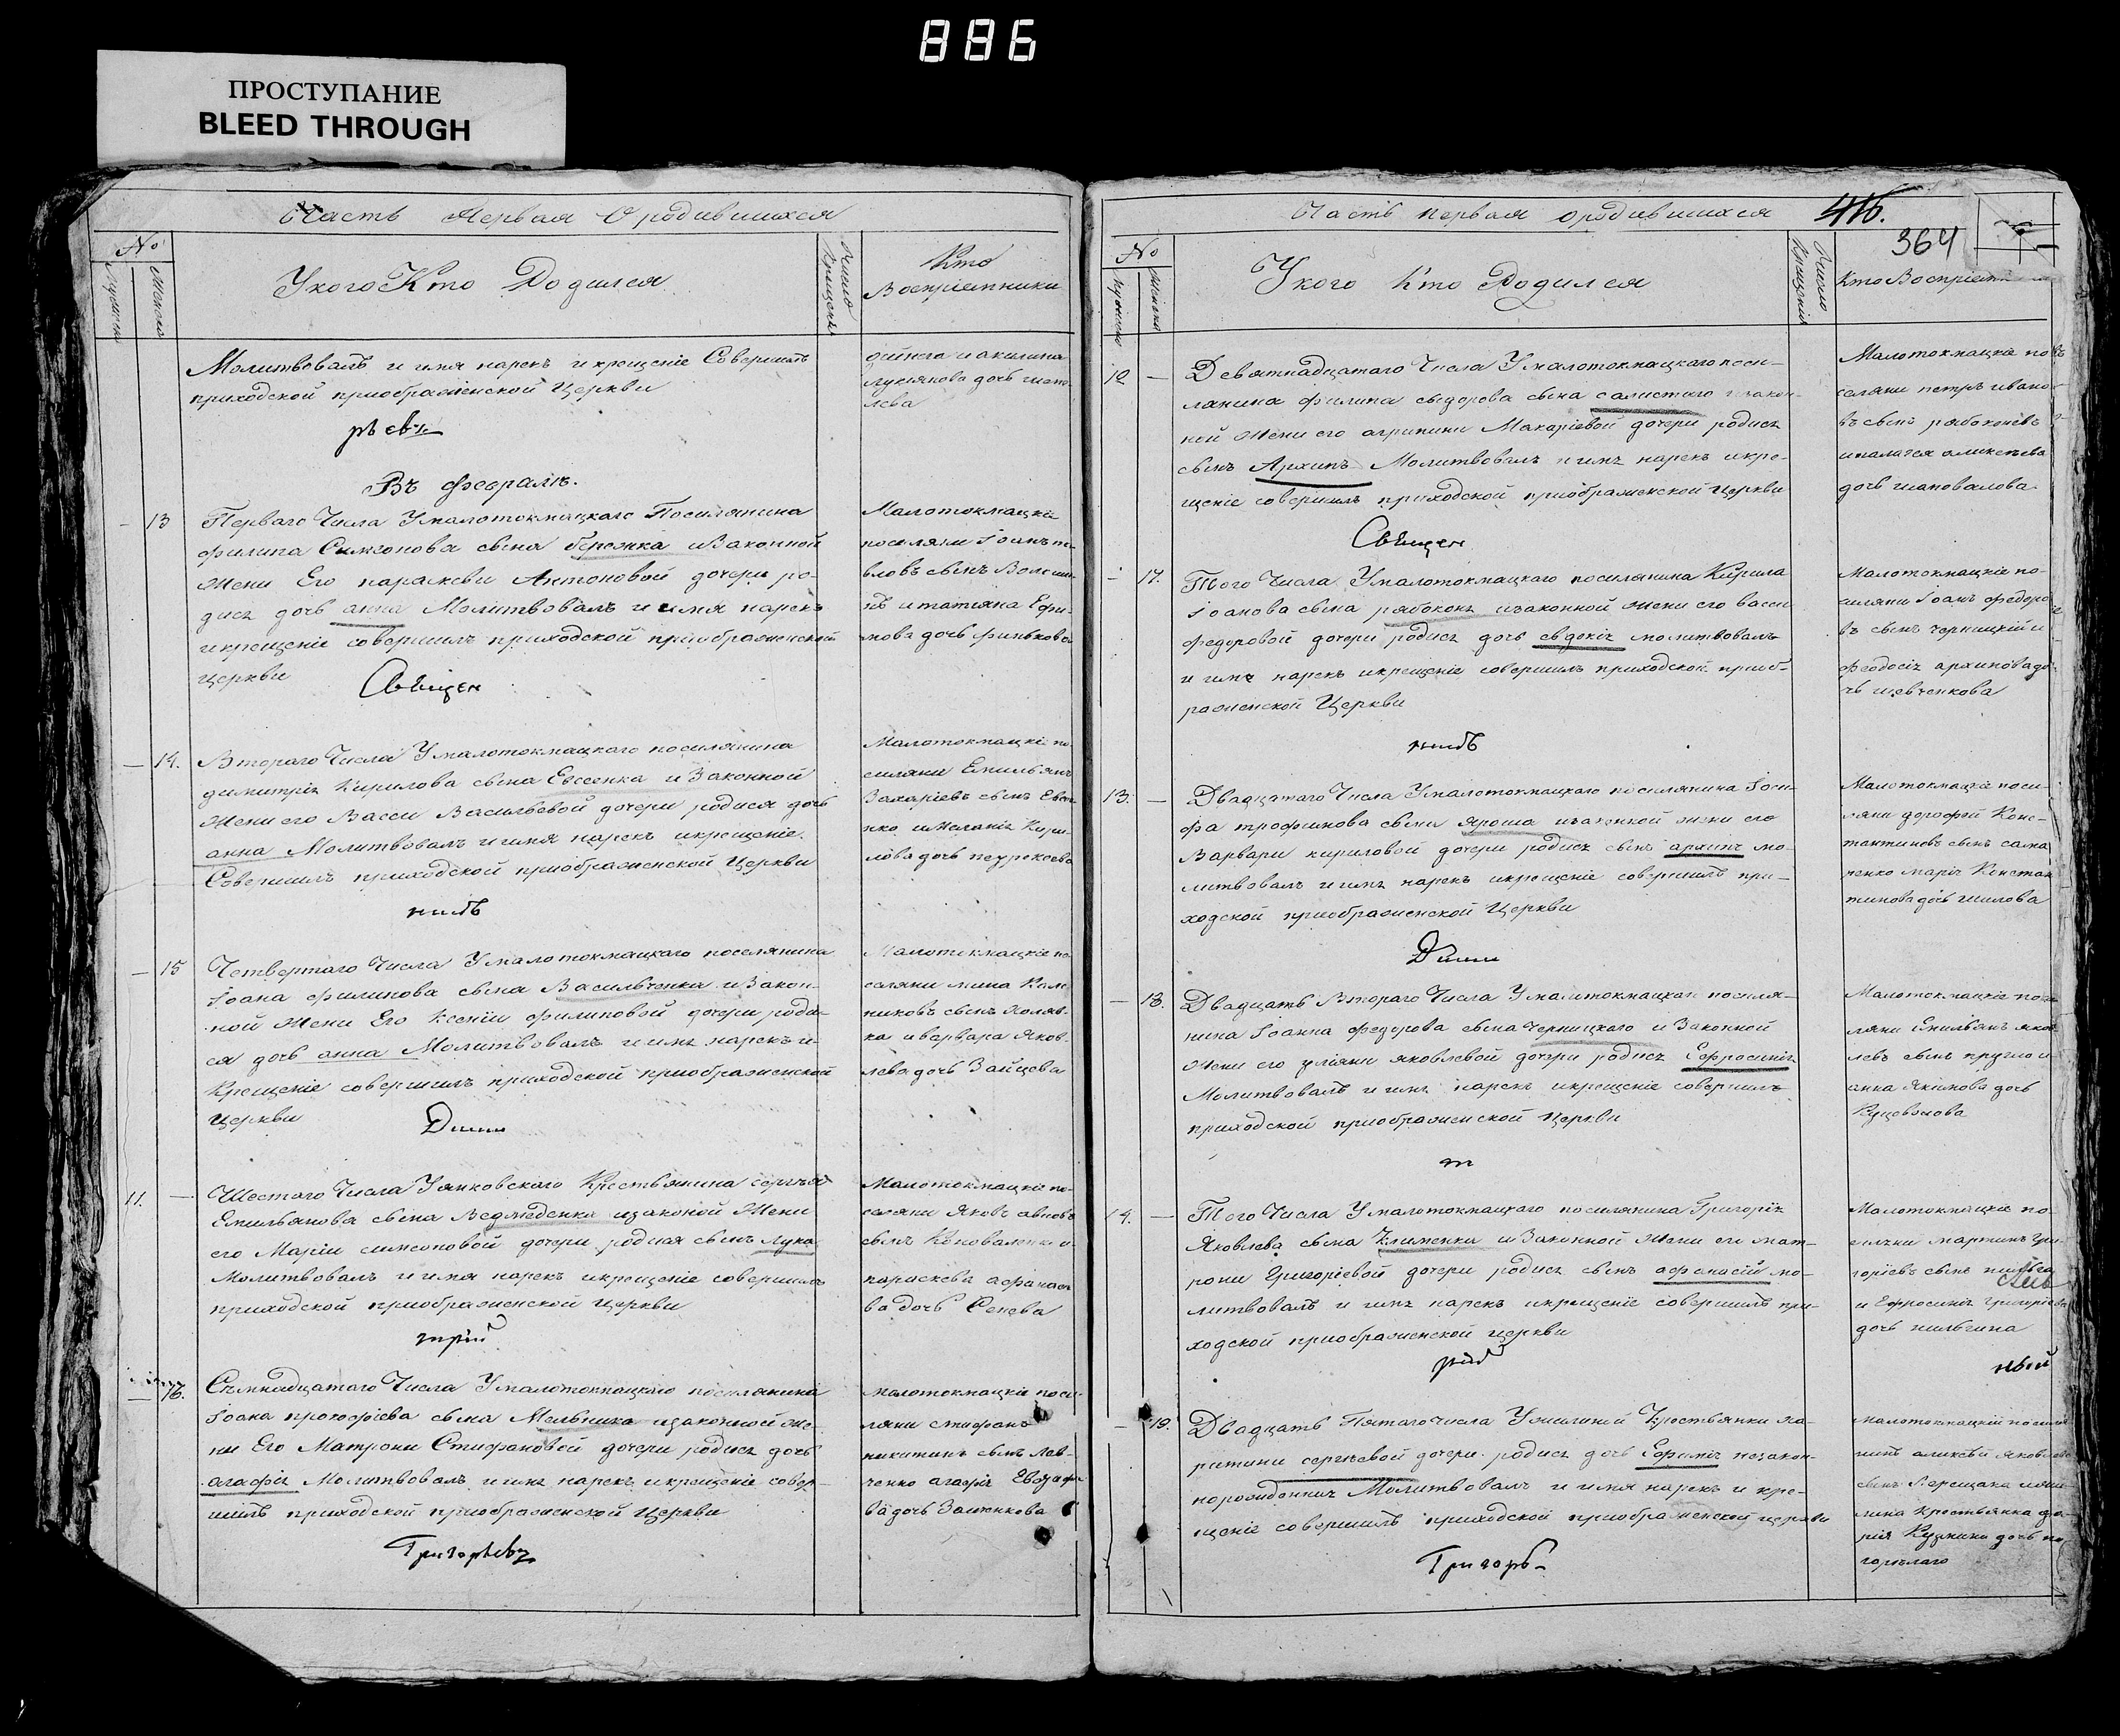 886
ПРОСТУПАНИЕ
BLEED THROUGH
Часть Первая О родившихся
№
Мужеска
Женска
У кого Кто Родился
Число Крещения
Кто
Восприемники
Молитвовалъ и имя нарекъ и крещеніе Совершилъ
приходской приображенской Церкви
ръевъ
ойнега и акилина
лукіянова дочь
лева
Въ февралѣ.
13
Перваго Числа У малотокмацкаго Поселянина
филипа Симеонова сына бережка и Законной
Жени Его параскеви Антоновой дочери ро-
дися дочь анна Молитвовалъ и имя нарекъ
и крещеніе совершилъ приходской приображенской
церкви
Священ
Малотокмацкіе
поселяни Іоанъ
вловъ сынъ Волоши
нъ и татяна Ефи-
мова дочь финькова
14.
Втораго Числа У малотокмацкаго поселянина
димитрія Кирилова сына Евсеенка и Законной
Жени его Васси Васильевой дочери родися дочь
анна Молитвовалъ и имя нарекъ и крещеніе
Совершилъ приходской приображенской Церкви
никъ
Малотокмацкіе по-
селяни Емильянъ
Захаріевъ сынъ Евсе-
нко и Меланія Кири-
лова дочь
15
Четвертаго Числа У малотокмацкаго поселянина
Іоана филипова сына Васильченка и Закон-
ной Жени Его Ксеніи филиповой дочери роди-
ся дочь анна Молитвовалъ и имя нарекъ и
Крещеніе совершилъ приходской приображенской
Церкви
Дими
Малотокмацкіе по-
селяни мина Кали
никовъ сынъ Холяв-
ка и варвара Яков-
лева дочь Зайцева
11.
Шестаго Числа У янковскаго Крестьянина сергѣя
Емильянова сына Ведмеденка и законой Жени
его Маріи симеоновой дочери родися сынъ лука
Молитвовалъ и имя нарекъ и крещеніе совершилъ
приходской приображенской церкви
трій
Малотокмацкіе по-
селяни Яковъ
сынъ Коноваленко и
параскева афанасіе
ва дочь Сенева
16.
Съмнадцатаго Числа У малотокмацкаго поселянина
Іоана прокофіева сына Мельника и законной же-
ни Его Матрони Стифановой дочери родися дочь
агафія Молитвовалъ и имя нарекъ и крещеніе совер-
шилъ приходской приображенской Церкви
Григорьевъ
малотокмацкіе посе-
ляни стифанъ
никитинъ сынъ Лев-
ченко агафія
ва дочь Заиченкова
Часть первая о родившихся
416.
364
№
Мужеска
Женска
У кого Кто Родился
Число Крещенія
Кто Воспріемни
12
Девятнадцатаго Числа У малотокмацкаго посе-
лянина филипа сидорова сына салистаго и закон-
ной Жени его агрипини Макаріевой дочери родися
сынъ Архипъ Молитвовалъ и имя нарекъ и кре-
щеніе совершилъ приходской приображенской Церкви
Священ
Малотокмацкіе по
селяни петръ ивано
въ сынъ рябоконевъ
и палагея аликсѣева
дочь шаповалова
17.
Того Числа У малотокмацкаго поселянина Кирила
Іоанова сына рябоконя и законной Жени его васси
федоровой дочери родися дочь евдокія молитвовалъ
и имя нарекъ и крещеніе совершилъ приходской приоб-
раженской Церкви
никъ
Малотокмацкіе по-
селяни Іоанъ федоро
въ сынъ черницкій и
феодосія архипова до-
чь шевченкова
13.
Двадцатаго Числа У малотокмацкаго поселянина Іоси-
фа трофимова сына Яроша и законной жени его
Варвари кириловой дочери родися сынъ архипъ мо-
литвовалъ и имя нарекъ и крещеніе совершилъ при-
ходской приображенской Церкви
Дими
Малотокмацкіе посе-
ляни дорофей Конс-
тантиновъ сынъ сама
ренко марія Констан
тинова дочь шилова
18.
Двадцать Втораго Числа У малотокмацкаго поселя-
нина Іоанна федорова сына Черницкаго и Законной
Жени его уліяни яковлевой дочери родися Ефросинія
Молитвовалъ и имя нарекъ и крещеніе совершилъ
приходской приображенской Церкви
т
Малотокмацкіе посе
ляни Емильянъ яков
левъ сынъ кругло и
анна Якимова дочь
Куцеволова
14.
Того Числа У малотокмацкаго поселянина Григорія
Яковлева сына Клименка и Законной Жени его мат-
рони Григоріевой дочери родися сынъ афанасій мо-
литвовалъ и имя нарекъ и крещеніе совершилъ при-
ходской приображенской церкви
рій
Малотокмацкіе по-
селяни мартинъ гри
горіевъ сынъ
и Ефросинія григоріева
дочь
19.
Двадцать Пятаго числа У Крестьянки ма-
ритини сергѣевой дочери родися дочь Ефимія незакон-
норожденная Молитвовалъ и имя нарекъ и кре-
щеніе совершилъ приходской приображенской церкви
Григорь
малотокмацкій поселя
нинъ аликсѣй яковлевъ
сынъ
Крестьянка
рія Кузмина дочь по
горѣлаго